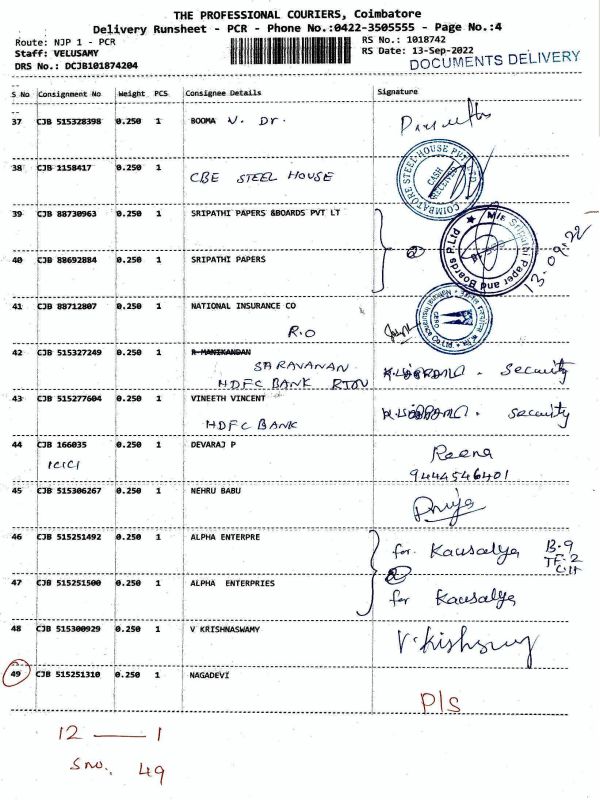 THE PROFESSIONAL COURIERS, Coimbatore
Delivery Runsheet - PCR - Phone No.:0422-3505555 - Page No.:4
Route: NJP 1 - PCR
RS No.: 1018742
Staff: VELUSAMY
RS Date: 13-Sep-2022
DRS No.: DCJB101874204
DOCUMENTS DELIVERY
S No Consignment No Weight PCS Consignee Details Signature
37 CJB 515328398 0.250 1 BOOMA V. Dr.
38 CJB 1158417 0.250 1
CBE STEEL HOUSE
COIMBATORE STEEL HOUSE PVT LTD
CASH RECEIVED
39 CJB 88730963 0.250 1 SRIPATHI PAPERS &BOARDS PVT LT
M/s Sripathi Paper and Boards P.Ltd
13.09.22
40 CJB 88692884 0.250 1 SRIPATHI PAPERS
41 CJB 88712807 0.250 1 NATIONAL INSURANCE CO
R.O
42 CJB 515327249 0.250 1 R MANIKANDAN
SARAVANAN
HDFC BANK security
43 CJB 515277604 0.250 1 VINEETH VINCENT
HDFC BANK security
44 CJB 166035 0.250 1 DEVARAJ P Reena
ICICI 9444546401
45 CJB 515306267 0.250 1 NEHRU BABU
46 CJB 515251492 0.250 1 ALPHA ENTERPRE
for Kausalya B-9
TF-2
47 CJB 515251500 0.250 1 ALPHA ENTERPRIES
for Kausalya
48 CJB 515300929 0.250 1 V KRISHNASWAMY
49 CJB 515251310 0.250 1 NAGADEVI
P/S
12 — 1
S no. 49